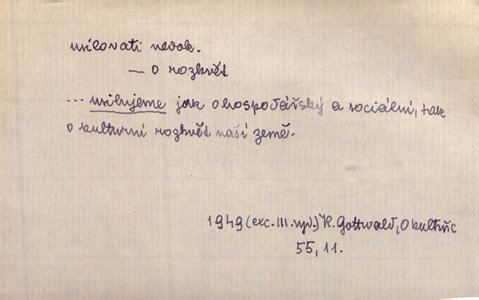 usilovati nedok.
— o rozkvět
... usilujeme jak o hospodářský a sociální, tak
o kulturní rozkvět naší země.
1949 (exc. III. vyd.) K. Gottwald, O kultuře
55, 11.